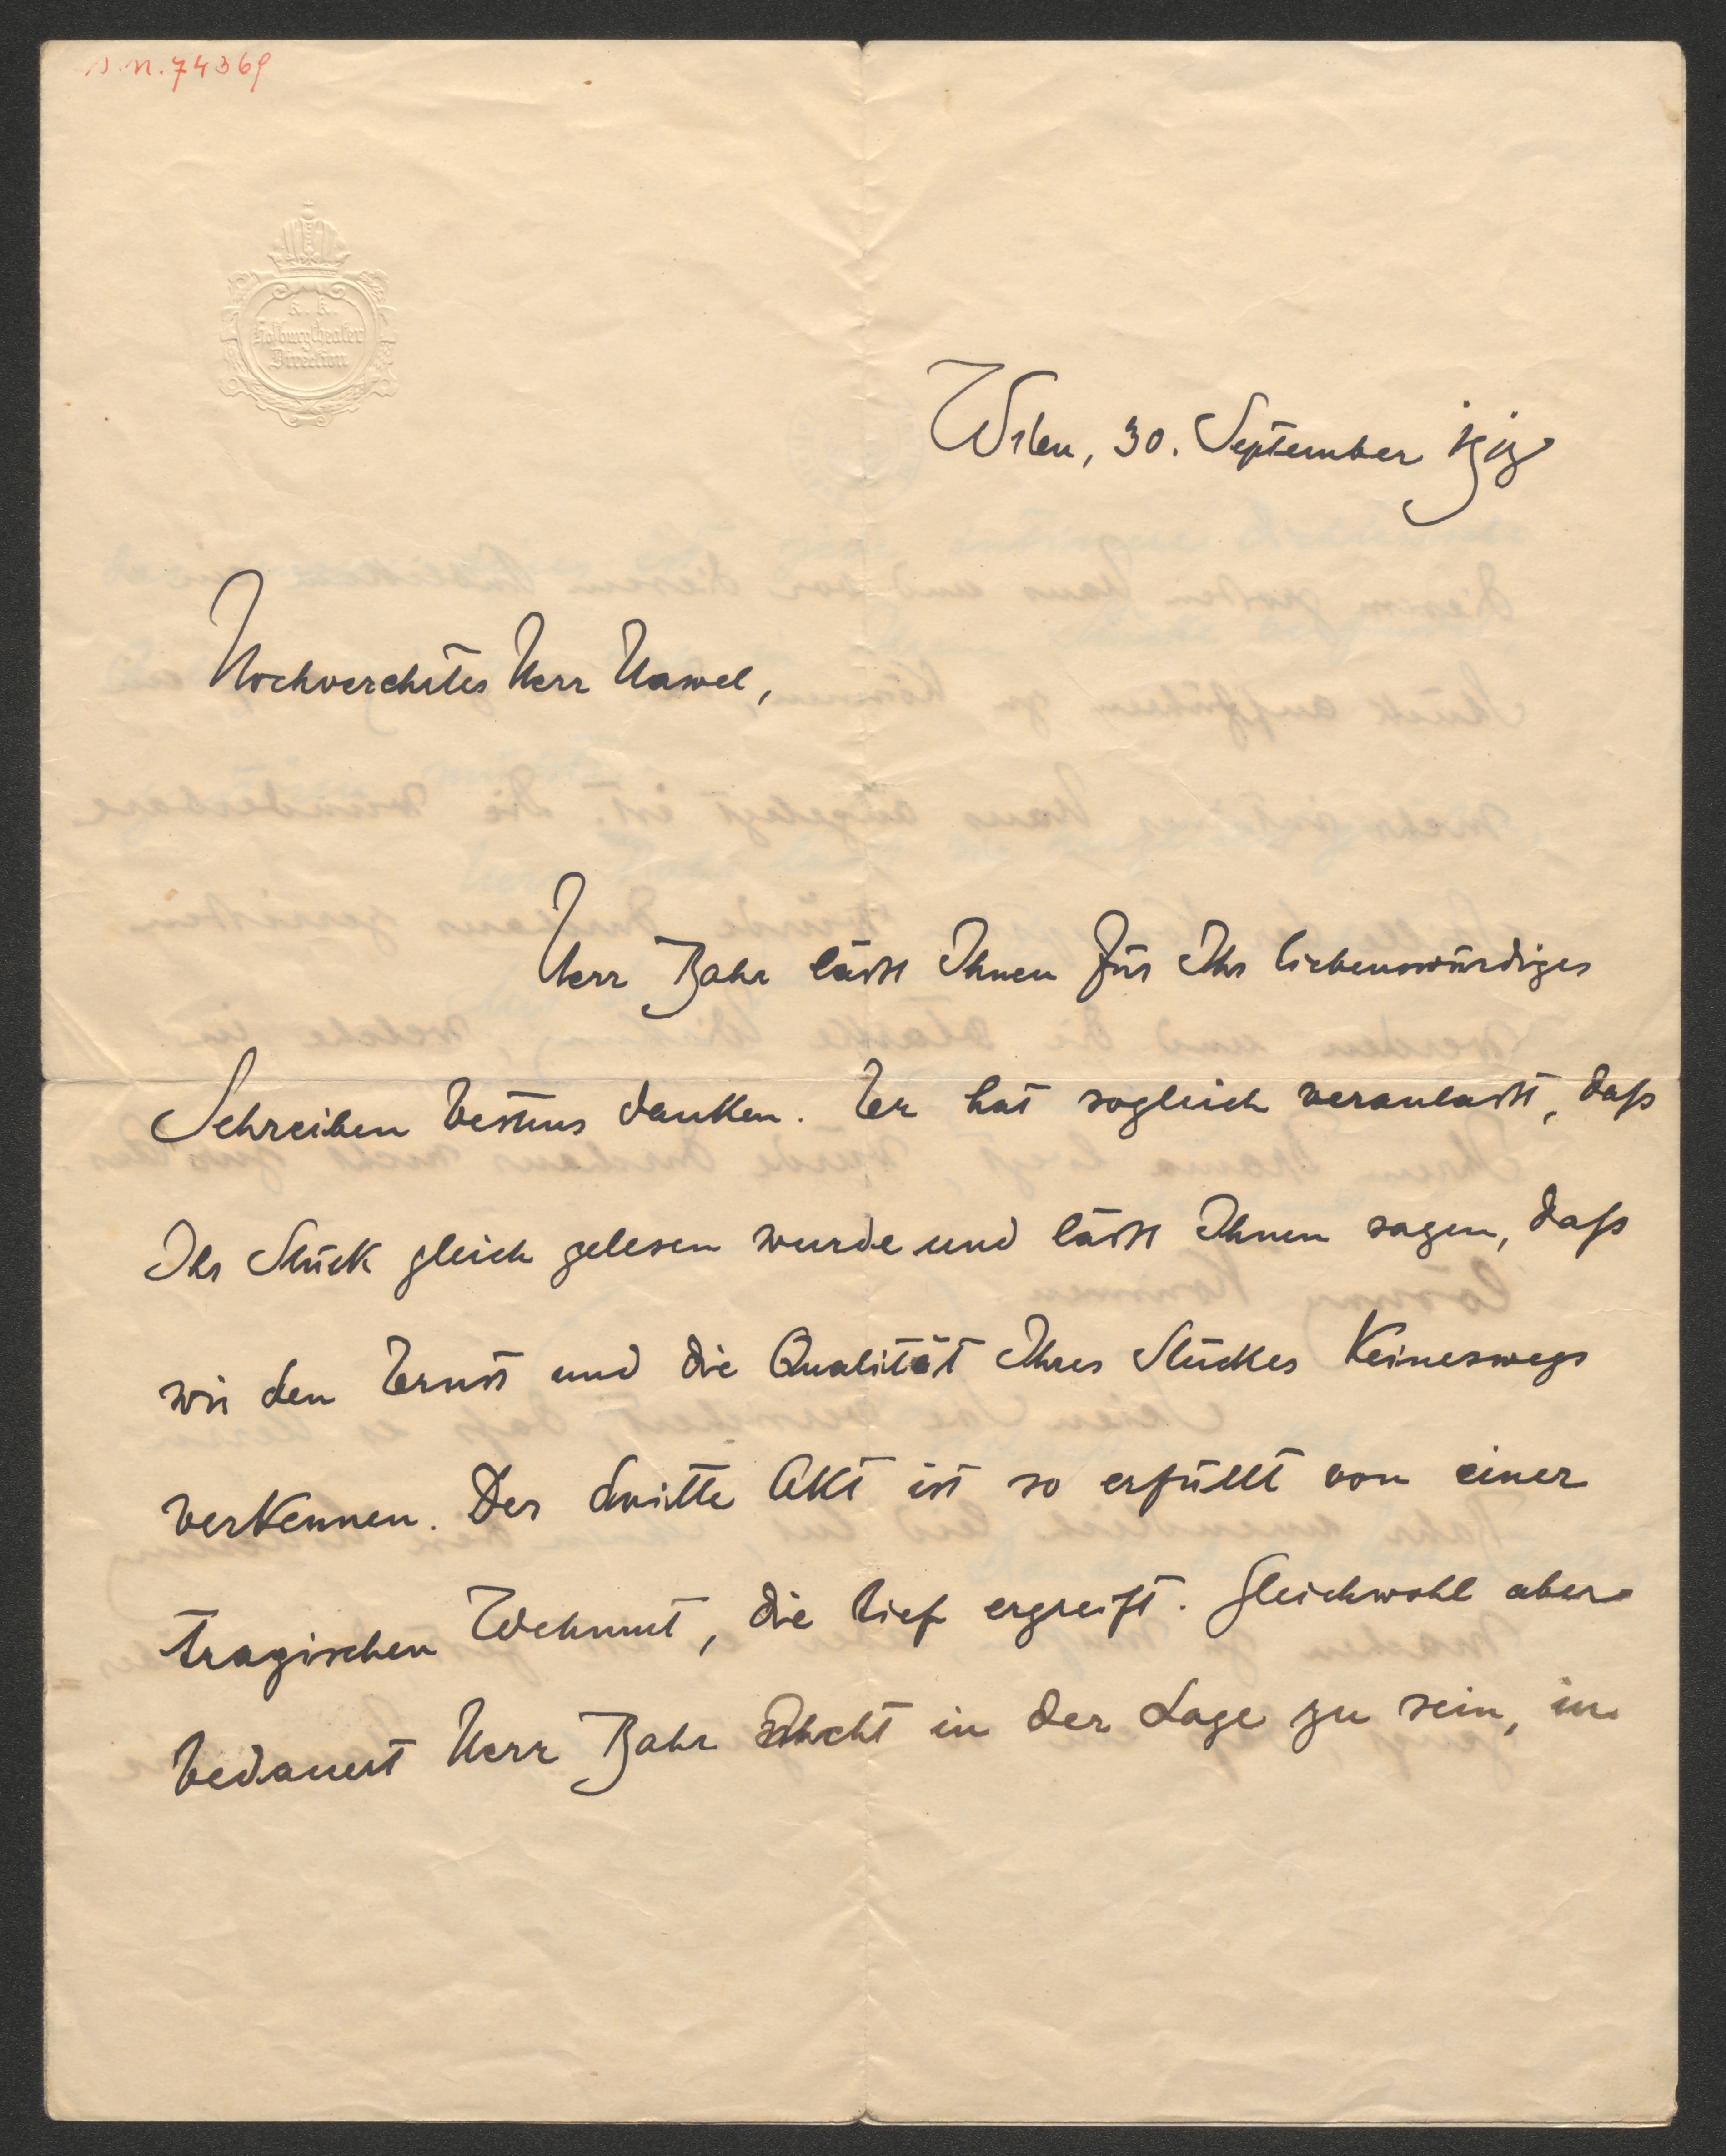 I.N. 74369
K. K.
Hofburgtheater
Direction
Wien, 30. September 1918
Hochverehrter Herr Hawel,
Herr Bahr lässt Ihnen für Ihr liebenswürdiges
Schreiben bestens danken. Er hat sogleich veranlasst, daß
Ihr Stück gleich gelesen wurde und lässt Ihnen sagen, daß
wir den Ernst und die Qualität Ihres Stückes keineswegs
verkennen. Der dritte Akt ist so erfüllt von einer
tragischen Wehmut, die tief ergreift. Gleichwohl aber
bedauert Herr Bahr nicht in der Lage zu sein, in